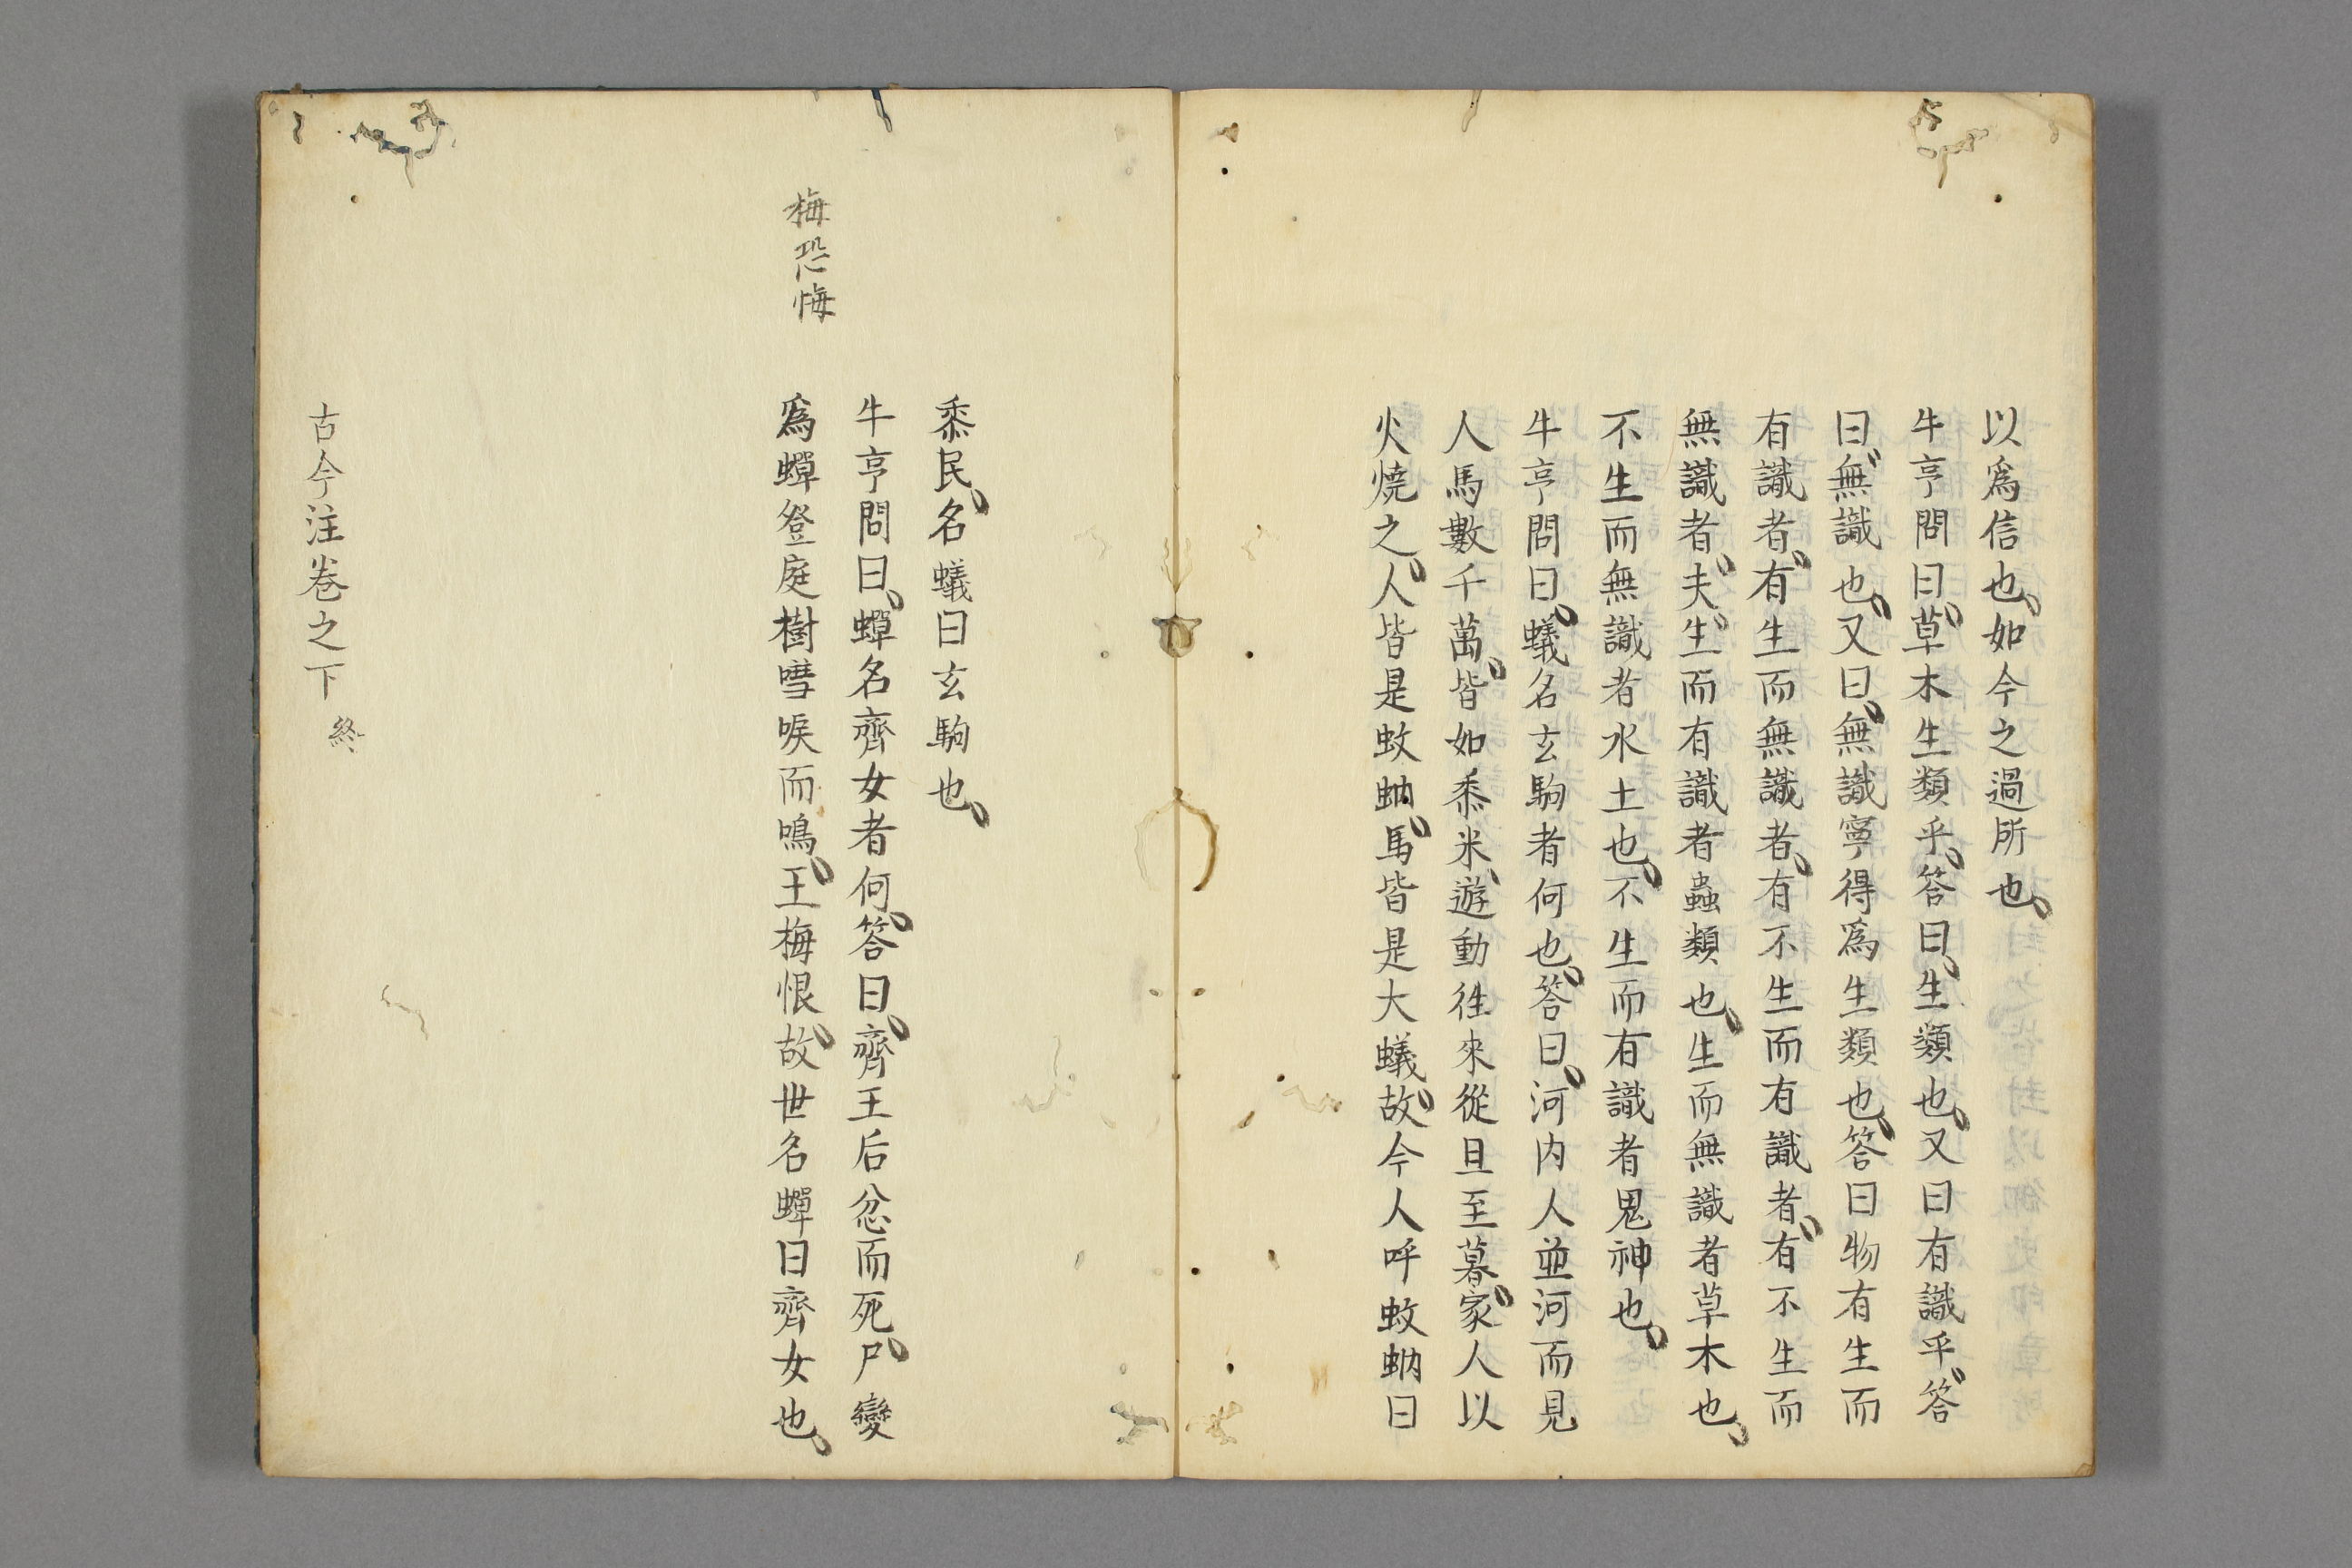 以爲信也、如今之過所也、
牛亨問曰、草木生類乎、答曰、生類也、又曰有識乎、答
曰、無識也、又曰、無識寧得爲生類也、答曰物有生而
有識者、有生而無識者、有不生而有識者、有不生而
無識者、夫生而有識者蟲類也、生而無識者草木也、
不生而無識者水土也、不生而有識者鬼神也、
牛亨問曰、蟻名玄駒者何也、答曰、河内人並河而見
人馬數千萬、皆如黍米、遊動往來從旦至暮、家人以
火燒之、人皆是蚊蚋、馬皆是大蟻、故今人呼蚊蚋曰
黍民、名蟻曰玄駒也、
牛亨問曰、蟬名齊女者何、答曰、齊王后忿而死、尸變
爲蟬登庭樹嘒唳而鳴、王梅恨、故世名蟬曰齊女也、
梅恐悔
古今注卷之下 終